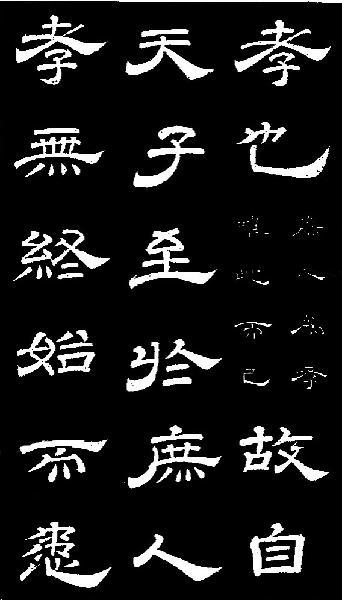 孝也庶人為孝唯此而已故自
天子至於庶人
孝無終始而患